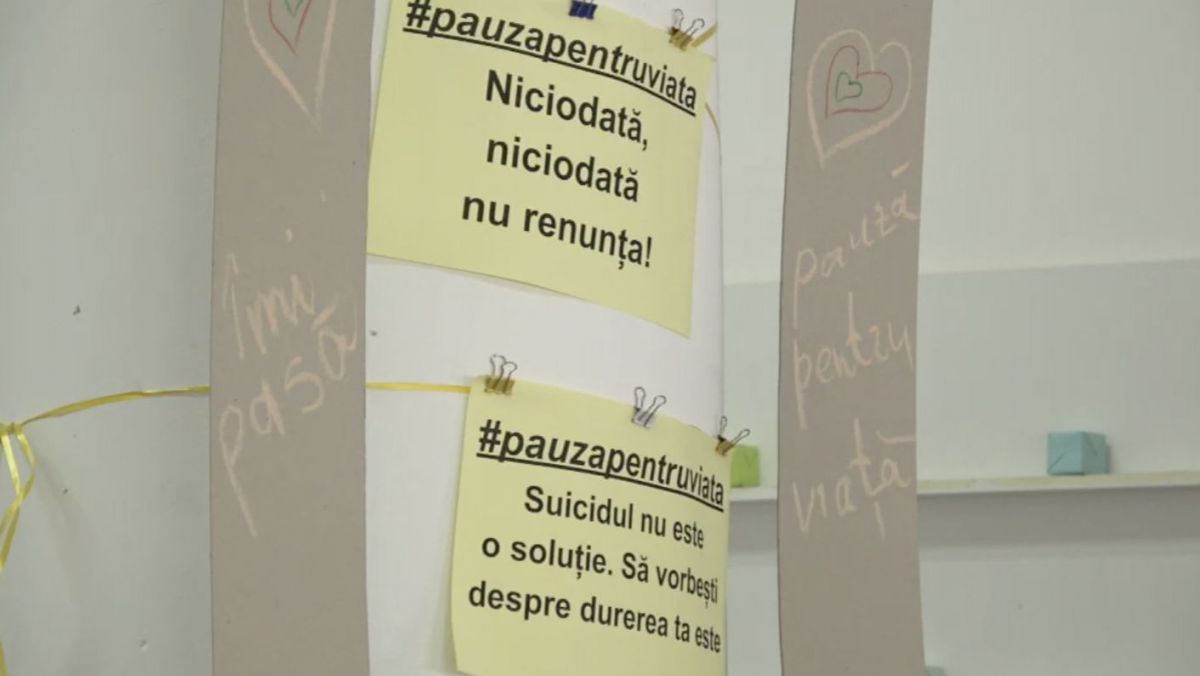 #pauzapentruviata
Niciodată,
niciodată
nu renunța!
Îmi
pasă
#pauzapentruviata
Suicidul nu este
o soluție. Să vorbești
despre durerea ta este
pauză
pentru
viață